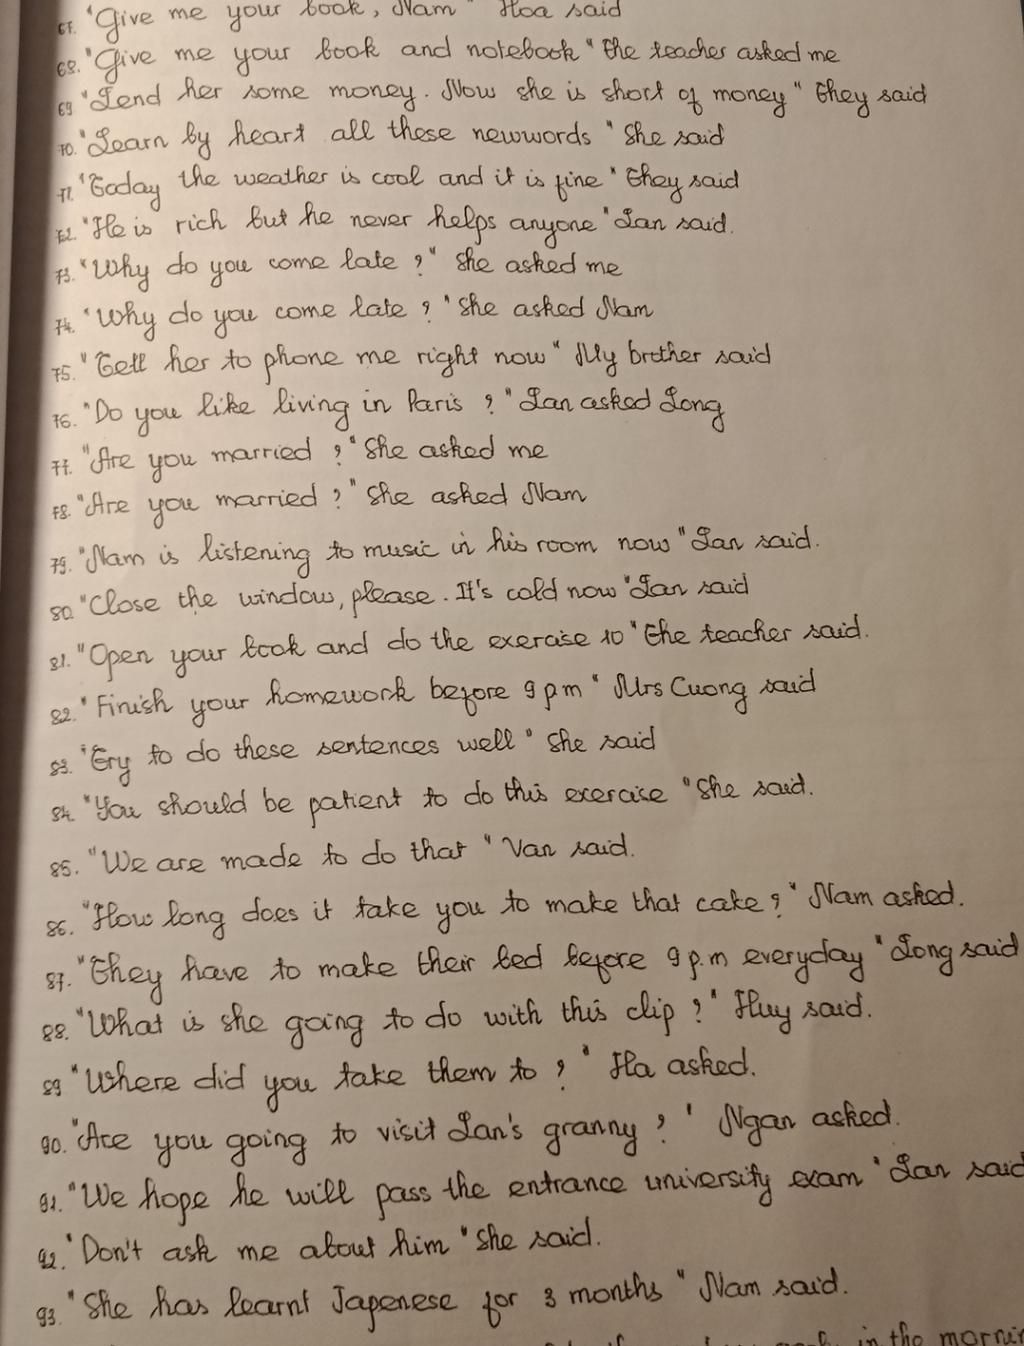 67. "Give me your book, Nam" Hoa said
68. "Give me your book and notebook" the teacher asked me
69 "Lend her some money. Now she is short of money" They said
70. "Learn by heart all these newwords" She said
71. "Today the weather is cool and it is fine" They said
72. "He is rich but he never helps anyone" Lan said.
73. "Why do you come late?" She asked me
74. "Why do you come late?" She asked Nam
75. "Tell her to phone me right now" My brother said
76. "Do you like living in Paris?" Lan asked Long
77. "Are you married?" She asked me
78. "Are you married?" She asked Nam
79. "Nam is listening to music in his room now" Lan said.
80. "Close the window, please. It's cold now" Lan said
81. "Open your book and do the exercise 10" the teacher said.
82. "Finish your homework before 9 pm" Mrs Cuong said
83. "Try to do these sentences well" She said
84. "You should be patient to do this exercise" She said.
85. "We are made to do that" Van said.
86. "How long does it take you to make that cake?" Nam asked.
87. "They have to make their bed before 9 p.m everyday" Long said
88. "What is she going to do with this clip?" Huy said.
89 "Where did you take them to?" Ha asked.
90. "Are you going to visit Lan's granny?" Ngan asked.
91. "We hope he will pass the entrance university exam" Lan said
92. "Don't ask me about him" She said.
93. "She has learnt Japenese for 3 months" Nam said.
in the morning